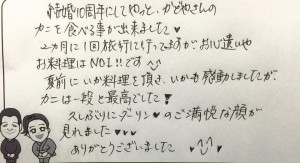 結婚10周年にしてやっと、かどやさんの
カニを食べる事が出来ました♥
2ヵ月に1回旅行に行ってますがお心遣いや
お料理はNO1!!です
夏前にいか料理を頂き、いかも感動しましたが
カニは一段と最高でした!
久しぶりにダーリン♥のご満悦な顔が
見れました♥♥♥
ありがとうございました